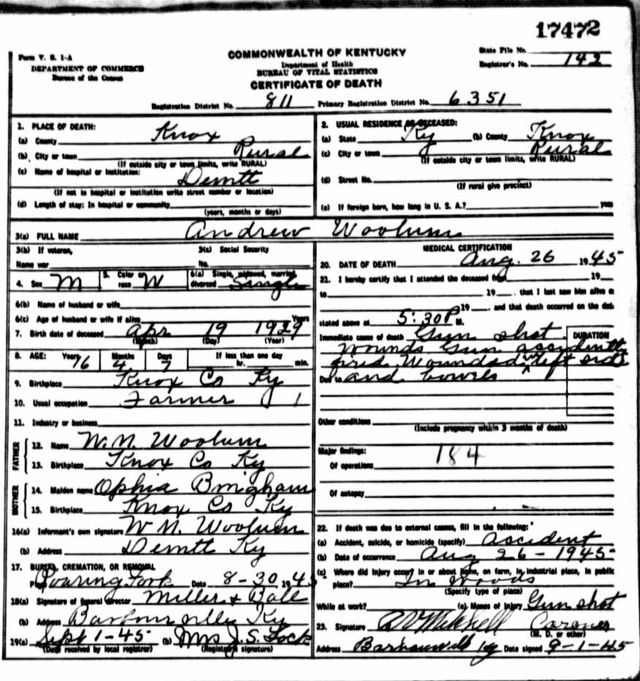 17472
Form V. S. 1-A
DEPARTMENT OF COMMERCE
Bureau of the Census
COMMONWEALTH OF KENTUCKY
Department of Health
BUREAU OF VITAL STATISTICS
CERTIFICATE OF DEATH
State File No.
Registrar's No. 142
Registration District No. 811 Primary Registration District No. 6351
1. PLACE OF DEATH:
(a) County Knox
(b) City or town Rural
(If outside city or town limits, write RURAL)
(c) Name of hospital or institution:
Dewitt
(If not in hospital or institution write street number or location)
(d) Length of stay: In hospital or community
(years, months or days)
2. USUAL RESIDENCE OF DECEASED:
(a) State Ky (b) County Knox
(c) City or town Rural
(If outside city or town limits, write RURAL)
(d) Street No.
(If rural give precinct)
(e) If foreign born, how long in U. S. A.?
3(a) FULL NAME Andrew Woolum
3(b) If veteran,
Name war
3(c) Social Security
No.
4. Sex M 5. Color or race W 6(a) Single, widowed, married, divorced Single
6(b) Name of husband or wife
6(c) Age of husband or wife if alive Years
7. Birth date of deceased Apr 19 1929
(Month) (Day) (Year)
8. AGE: Years 16 Months 4 Days 7 If less than one day hr. min.
9. Birthplace Knox Co Ky
10. Usual occupation Farmer
11. Industry or business
FATHER
12. Name W. N. Woolum
13. Birthplace Knox Co Ky
MOTHER
14. Maiden name Ophia Bingham
15. Birthplace Knox Co Ky
16(a) Informant's own signature W N. Woolum
(b) Address Dewitt Ky
17. BURIAL, CREMATION, OR REMOVAL
Roaring Fork Date 8-30, 1945
18(a) Signature of funeral director Miller & Ball
(b) Address Barbourville Ky
19(a) Sept 1-45 (b) Mrs J. S. Lock
(Date received by local registrar) (Registrar's signature)
MEDICAL CERTIFICATION
20. DATE OF DEATH Aug. 26 1945
21. I hereby certify that I attended the deceased from 19
to 19 , that I last saw him alive
19 , and that death occurred on the date
stated above at 5:30 P M.
Immediate cause of death Gun shot
DURATION
wounds Gun accidently
fired. Wounded left side
Due and bowels
Other conditions
(Include pregnancy within 3 months of death)
Major findings: 184
Of operations
Of autopsy
22. If death was due to external causes, fill in the following:
(a) Accident, suicide, or homicide (specify) accident
(b) Date of occurrence Aug 26-1945
(c) Where did injury occur? In or about home, on farm, in industrial place, in public
place? In Woods
(Specify type of place)
While at work? (e) Means of injury Gun shot
23. Signature Mitchell Coroner
(M. D. or other)
Address Ky Date signed 9-1-45